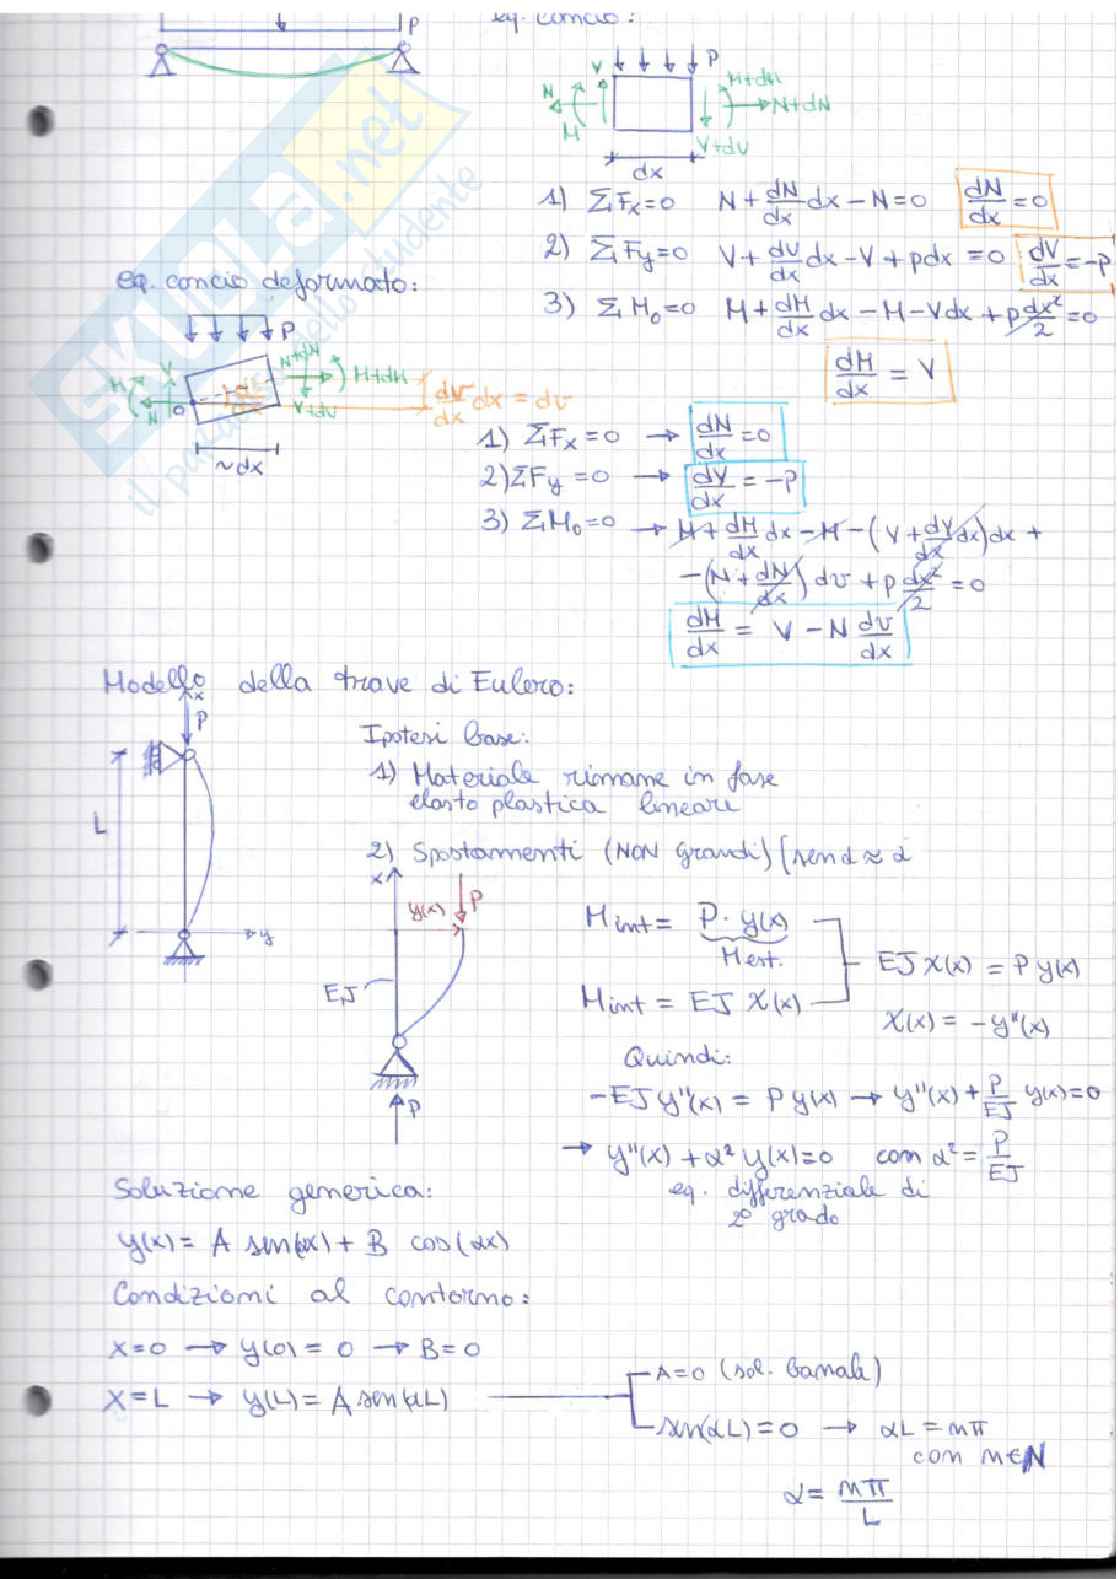 P
eq. concio:
P
V
N
M
M+dM
N+dN
V+dV
dx
1) ΣFx=0 N + dN/dx dx − N = 0 dN/dx = 0
2) ΣFy=0 V + dV/dx dx − V + pdx = 0 dV/dx = −P
3) ΣMo=0 M + dM/dx dx − M − Vdx + p dx²/2 = 0
dM/dx = V
eq. concio deformato:
P
M
V
N
O
N+dN
M+dM
V+dV
dv/dx dx = dv
~dx
1) ΣFx=0 → dN/dx = 0
2) ΣFy=0 → dV/dx = −P
3) ΣMo=0 → M + dM/dx dx − M − (V + dV/dx dx)dx +
−(N + dN/dx) dv + p dx²/2 = 0
dM/dx = V − N dv/dx
Modello della trave di Eulero:
x
P
L
y
Ipotesi base:
1) Materiale rimane in fase
elasto plastica lineare
2) Spostamenti (NON grandi) [sen α ≈ α
x
y(x)
P
EJ
P
Mint = P · y(x)
Mest.
Mint = EJ χ(x)
EJ χ(x) = P y(x)
χ(x) = −y''(x)
Quindi:
−EJ y''(x) = P y(x) → y''(x) + P/EJ y(x) = 0
→ y''(x) + α² y(x) = 0 con α² = P/EJ
eq. differenziale di
2° grado
Soluzione generica:
y(x) = A sen(αx) + B cos(αx)
Condizioni al contorno:
x=0 → y(0) = 0 → B=0
x=L → y(L) = A sen(αL)
A=0 (sol. banale)
sen(αL) = 0 → αL = nπ
con n∈N
α = nπ/L
SKUOLA.net
il paradiso dello studente